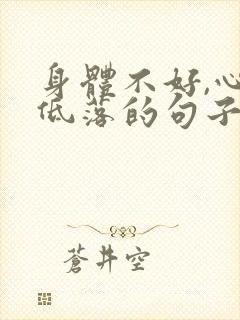 身體不好,心
低落的句子
蒼井空